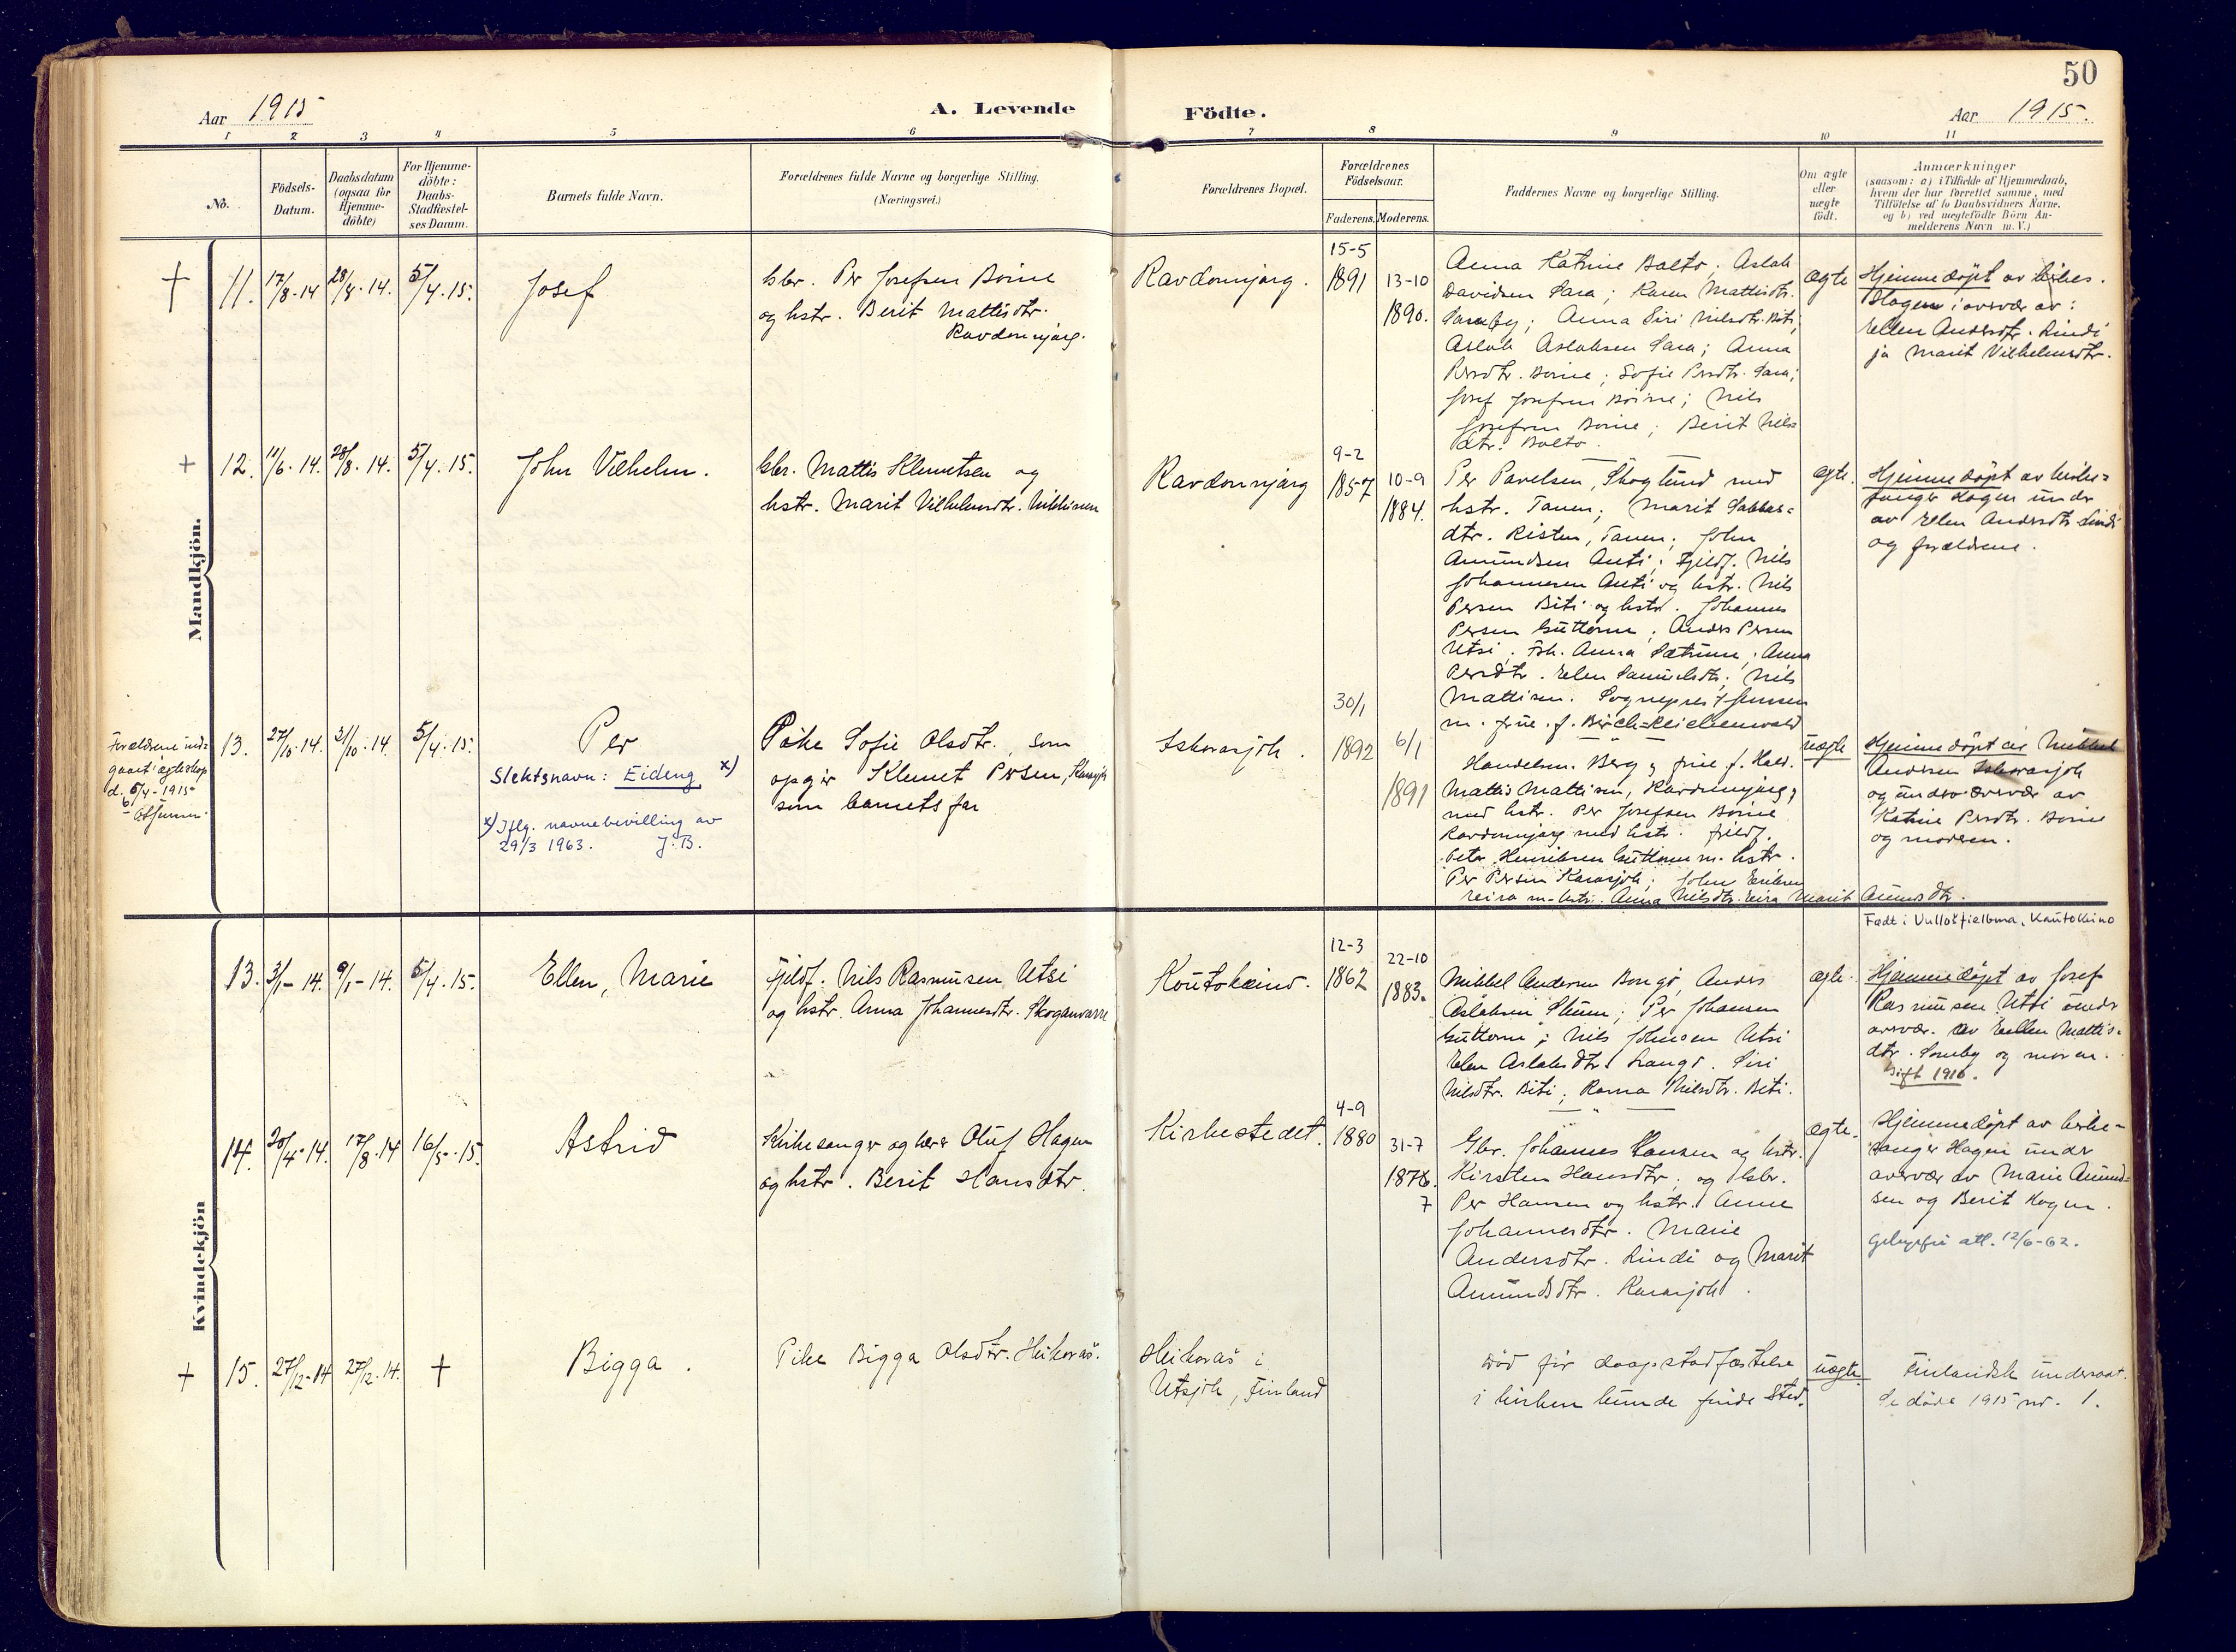 50
Aar 1915
A. Levende
Födte.
Aar 1915.
1 2 3 4 5 6 7 8 9 10 11
No.
Födsels-
Datum.
Daabsdatum
(ogsaa for
Hjemme-
döbte)
For Hjemme-
döbte:
Daabs-
Stadfæstel-
ses Datum.
Barnets fulde Navn.
Forældrenes fulde Navne og borgerlige Stilling.
(Næringsvei.)
Forældrenes Bopæl.
Forældrenes
Födselsaar.
Faderens. Moderens.
Faddernes Navne og borgerlige Stilling.
Om ægte
eller
uægte
födt.
Anmærkninger
(saasom: a) i Tilfælde af Hjemmedaab,
hvem der har forrettet samme, med
Tilföielse af to Daabsvidners Navne.
og b) ved uægtefödte Börn An-
melderens Navn m. V.)
Mandkjön.
† 11. 17/8-14 28/8-14. 5/4-15.
Josef
Gbr. Per Josefsen Boine
og hstr. Berit Mattisdtr.
Ravdonnjarg.
Ravdonnjarg.
15-5
1891
13-10
1890.
Anna Katrine Balto; Aslak
Davidsen Sara; Karen Mattisdtr.
Anna Siri Nilsdtr. Biti;
Aslak Aslaksen Sara; Anna
Persdtr. Boine; Sofie Persdtr. Sara;
Josef Josefsen Boine; Nils
Josefsen Boine; Berit Nils
dtr. Balto.
ægte
Hjemmedøpt av
Hagen i overvær av:
Ellen Andersdtr. Lindi
ja Marit Vilhelmsdtr.
+ 12. 11/6-14. 28/8-14. 5/4-15.
John Vilhelm.
Gbr. Mattis Klemetsen og
hstr. Marit Vilhelmsdtr.
Ravdonnjarg
9-2
1857
10-9
1884.
Per Pavelsen, Skoglund med
hstr. Tanen; Marit
dtr. Risten, Tanen; John
Amundsen Anti; Fjeldf. Nils
Johannesen Anti og hstr. Nils
Persen Biti og hstr. Johannes
Persen Guttorm; Anders Persen
Utsi; Anna
Persdtr. Elen Samuelsdtr; Nils
Mattisen. Sogneprest Jensen
m. frue f. Birch-Reichenwald
ægte.
Hjemmedøpt av kirke=
sanger Hagen under
av Ellen Andersdtr Lindi
og forældrene.
Forældrene ind=
gaaet i ægteskap
d. 5/4-1915
13. 27/10-14. 31/10-14. 5/4-15.
Per
Slektsnavn: Eideng x)
x) Iflg. navnebevilling av
29/3 1963. J.B.
Pike Sofie Olsdtr., som
opgir Klemet Persen, Karasjok
som barnets far
Iskorasjok.
30/1
1892
6/1
1891
Handelsm. Berg og frue f.
Mattis Mattisen, Ravdonnjarg,
med hstr. Per Josefsen Boine
Ravdonnjarg med hstr. Fjeldf.
Peter Henriksen Guttorm m. hstr.
Per Persen Karasjok; John Eriksen
Eira m. hstr. Anna Nilsdtr. Eira Marit Amundsdtr.
uægte
Hjemmedøpt av Mikkel
Andersen Iskorasjok
og under overvær av
Katrine Persdtr. Boine
og moderen.
Kvindekjön
13. 3/1-14. 9/1-14. 5/4-15.
Ellen, Marie
Fjeldf. Nils Rasmusen Utsi
og hstr. Anna Johannesdtr. Skoganvarre
Koutokeino.
12-3
1862
22-10
1883.
Mikkel Andersen Bongo, Anders
Aslaksen; Per Johansen
Guttorm; Nils Johnsen Utsi
Elen Aslaksdtr. Siri
Nilsdtr. Biti; Nilsdtr. Biti.
ægte.
Født i Vulloštjelbma, Kautokeino
Hjemmedøpt av Josef
Rasmusen Utsi under
overvær. av Ellen Mattis-
dtr. Somby og moren.
Gift 1916.
14. 20/4-14. 17/8-14 16/5-15.
Astrid
Kirkesanger og lærer Oluf Hagen
og hstr. Berit Hansdtr.
Kirkestedet.
4-9
1880
31-7
1878.
7
Gbr. Johannes Hansen og hstr.
Kirsten Hansdtr; og Gbr.
Per Hansen og hstr. Anne
Johannesdtr. Marie
Andersdtr. Lindi og Marit
Amundsdtr. Karasjok.
ægte.
Hjemmedøpt av kirke-
sanger Hagen under
overvær av Marie Amund-
sen og Berit Hagen.
Gebyrfri att. 12/6-62.
+ 15. 27/12-14 27/12-14. +
Bigga.
Pike Bigga Olsdtr. Heikovaš.
Heikovaš i
Utsjok, Finland
Død før daapstadfæstelse
i kirken kunde finde sted.
uægte
Finlandsk undersaat.
Se døde 1915 nr. 1.